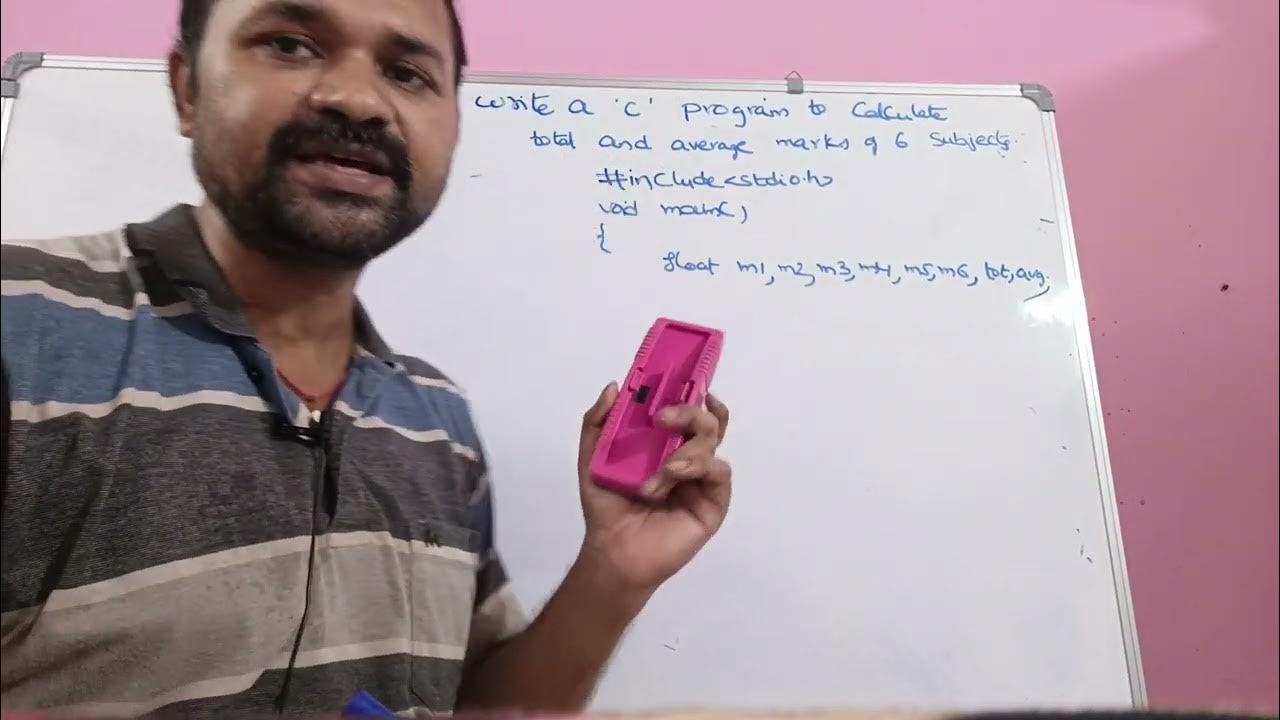 write a 'C' program to Calculate
total and average marks of 6 Subjects.
#include<stdio.h>
void main()
{
float m1, m2, m3, m4, m5, m6, tot, avg;